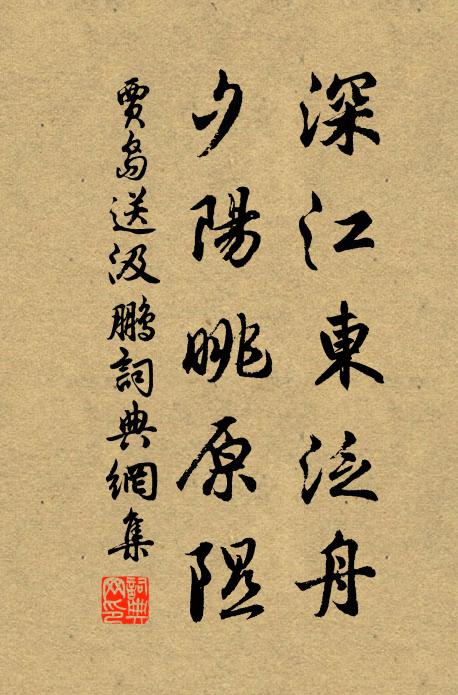 深江東泛舟
夕陽眺原隰
賈島送汲鵬詞典網集
詞典网印